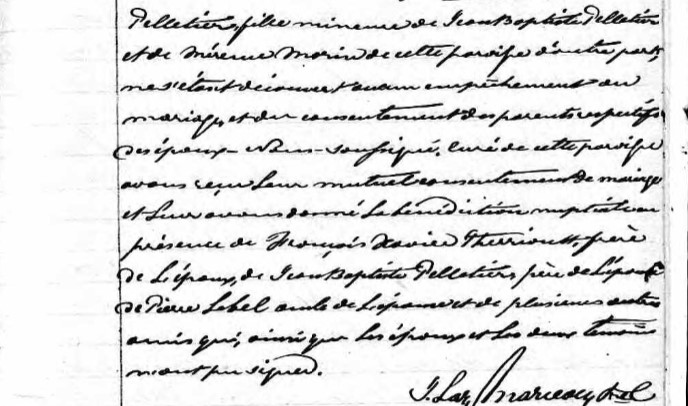 Pelletier, fille mineure de Jean Baptiste Pelletier
et de Mérence Morin de cette paroisse d'autre part,
ne s'étant découvert aucun empêchement au
mariage, et du consentement des parents respectifs
des époux - Nous - soussigné, Curé de cette paroisse
avons reçu leur mutuel consentement de mariage
et leur avons donné la bénédiction nuptiale en
présence de François Xavier Therriault, frère
de l'époux, de Jean Baptiste Pelletier, père de l'épouse
de Pierre Lebel oncle de l'épouse et de plusieurs autres
amis qui, ainsi que les époux et les deux témoins
n'ont pu signer.
J. Laz Marceau